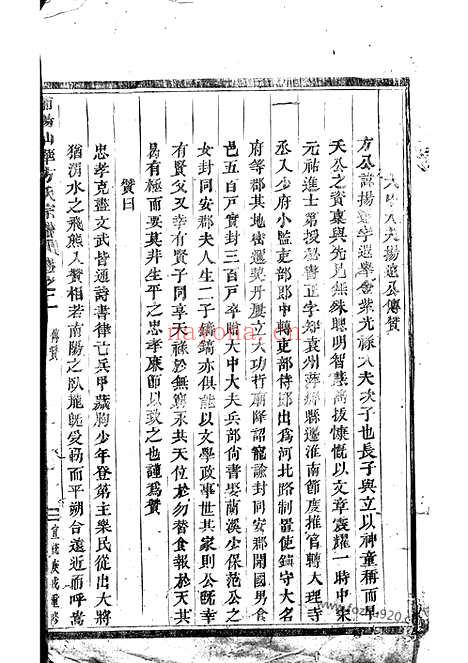 大中大夫揚逺公傳贊
方公諱揚逺字選舉金紫光祿大夫次子也長子興立以神童稱而早
天公之資稟與先兄無殊聰明智慧高拔慷慨以文章震耀一時中宋
元祐進士第授秘書正字知袁州萍鄉縣遷淮南節度推官轉大理寺
丞入少府小監吏部郎中轉吏部侍郎出為河北路制置使鎮守大名
府等郡其地密邇契丹屢立大功哲廟降詔寵諭封同安郡開國男食
邑五百戶實封三百戶卒贈大中大夫兵部尚書娶蘭溪少保范公之
女封同安郡夫人生二子鑄鎬亦俱能以文學政事世其家則公既幸
有賢父又幸有賢子同享天祿於無窮永共天位於勿替食報於天其
曷有極而要莫非生平之忠孝廉節以致之也謹為贊
贊曰
忠孝克盡文武皆通詩書律亡兵甲藏胸少年登第主衆民從出大將
猶渭水之飛熊入贊相若南陽之臥龍既受朝而平朔合遠近而呼嵩
浦陽山華方氏宗譜 卷之二 傳贊 一 宣統庚戌重修